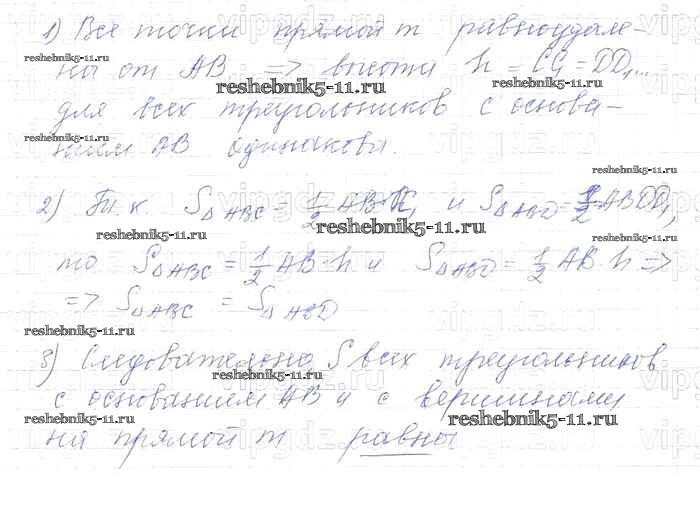 1) Все точки прямой m равноудале-
ны от AB => высоты h = CC₁ = DD₁...
для всех треугольников с основа-
нием AB одинаковы.
2) Т.к S△ABC = 1/2 AB·CC₁ и S△ABD = 1/2 AB·DD₁,
то S△ABC = 1/2 AB·h и S△ABD = 1/2 AB·h =>
=> S△ABC = S△ABD
3) Следовательно S всех треугольников
с основанием AB и с вершинами
на прямой m равны
reshebnik5-11.ru
reshebnik5-11.ru
reshebnik5-11.ru
reshebnik5-11.ru
reshebnik5-11.ru
reshebnik5-11.ru
reshebnik5-11.ru
reshebnik5-11.ru
reshebnik5-11.ru
reshebnik5-11.ru
reshebnik5-11.ru